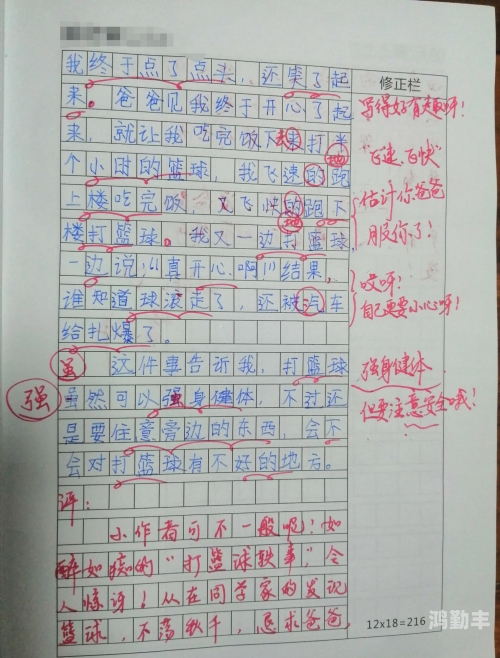 我终于点了点头，还笑了起
来。爸爸见我终于开心了起
来，就让我吃完饭下来打半
个小时的篮球，我飞速的跑
地
上楼吃完饭，又飞快的跑下
地
楼打篮球。我又一边打篮球，
一边说：“真开心啊！”结果，
谁知道球滚走了，还被汽车
给扎爆了。
虽 这件事告诉我，打篮球
强 虽然可以强身健体，不过还
是要任意旁边的东西，会不
会对打篮球有不好的地方。
评：
小作者可不一般呢！如
醉如痴的“打篮球轶事”，令
人惊讶！从在同学家的发现
篮球，不荡秋千，恳求爸爸，
修正栏
写得好有趣呀！
“飞速、飞快”
估计你爸爸
服你了！
哎呀！
自己要小心呀！
强身健体
但要注意安全哦！
12x18=216
鸿勤丰